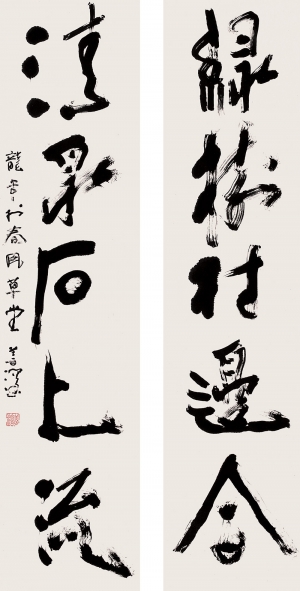 綠樹村邊合
清泉石上流
龍年於春風草堂